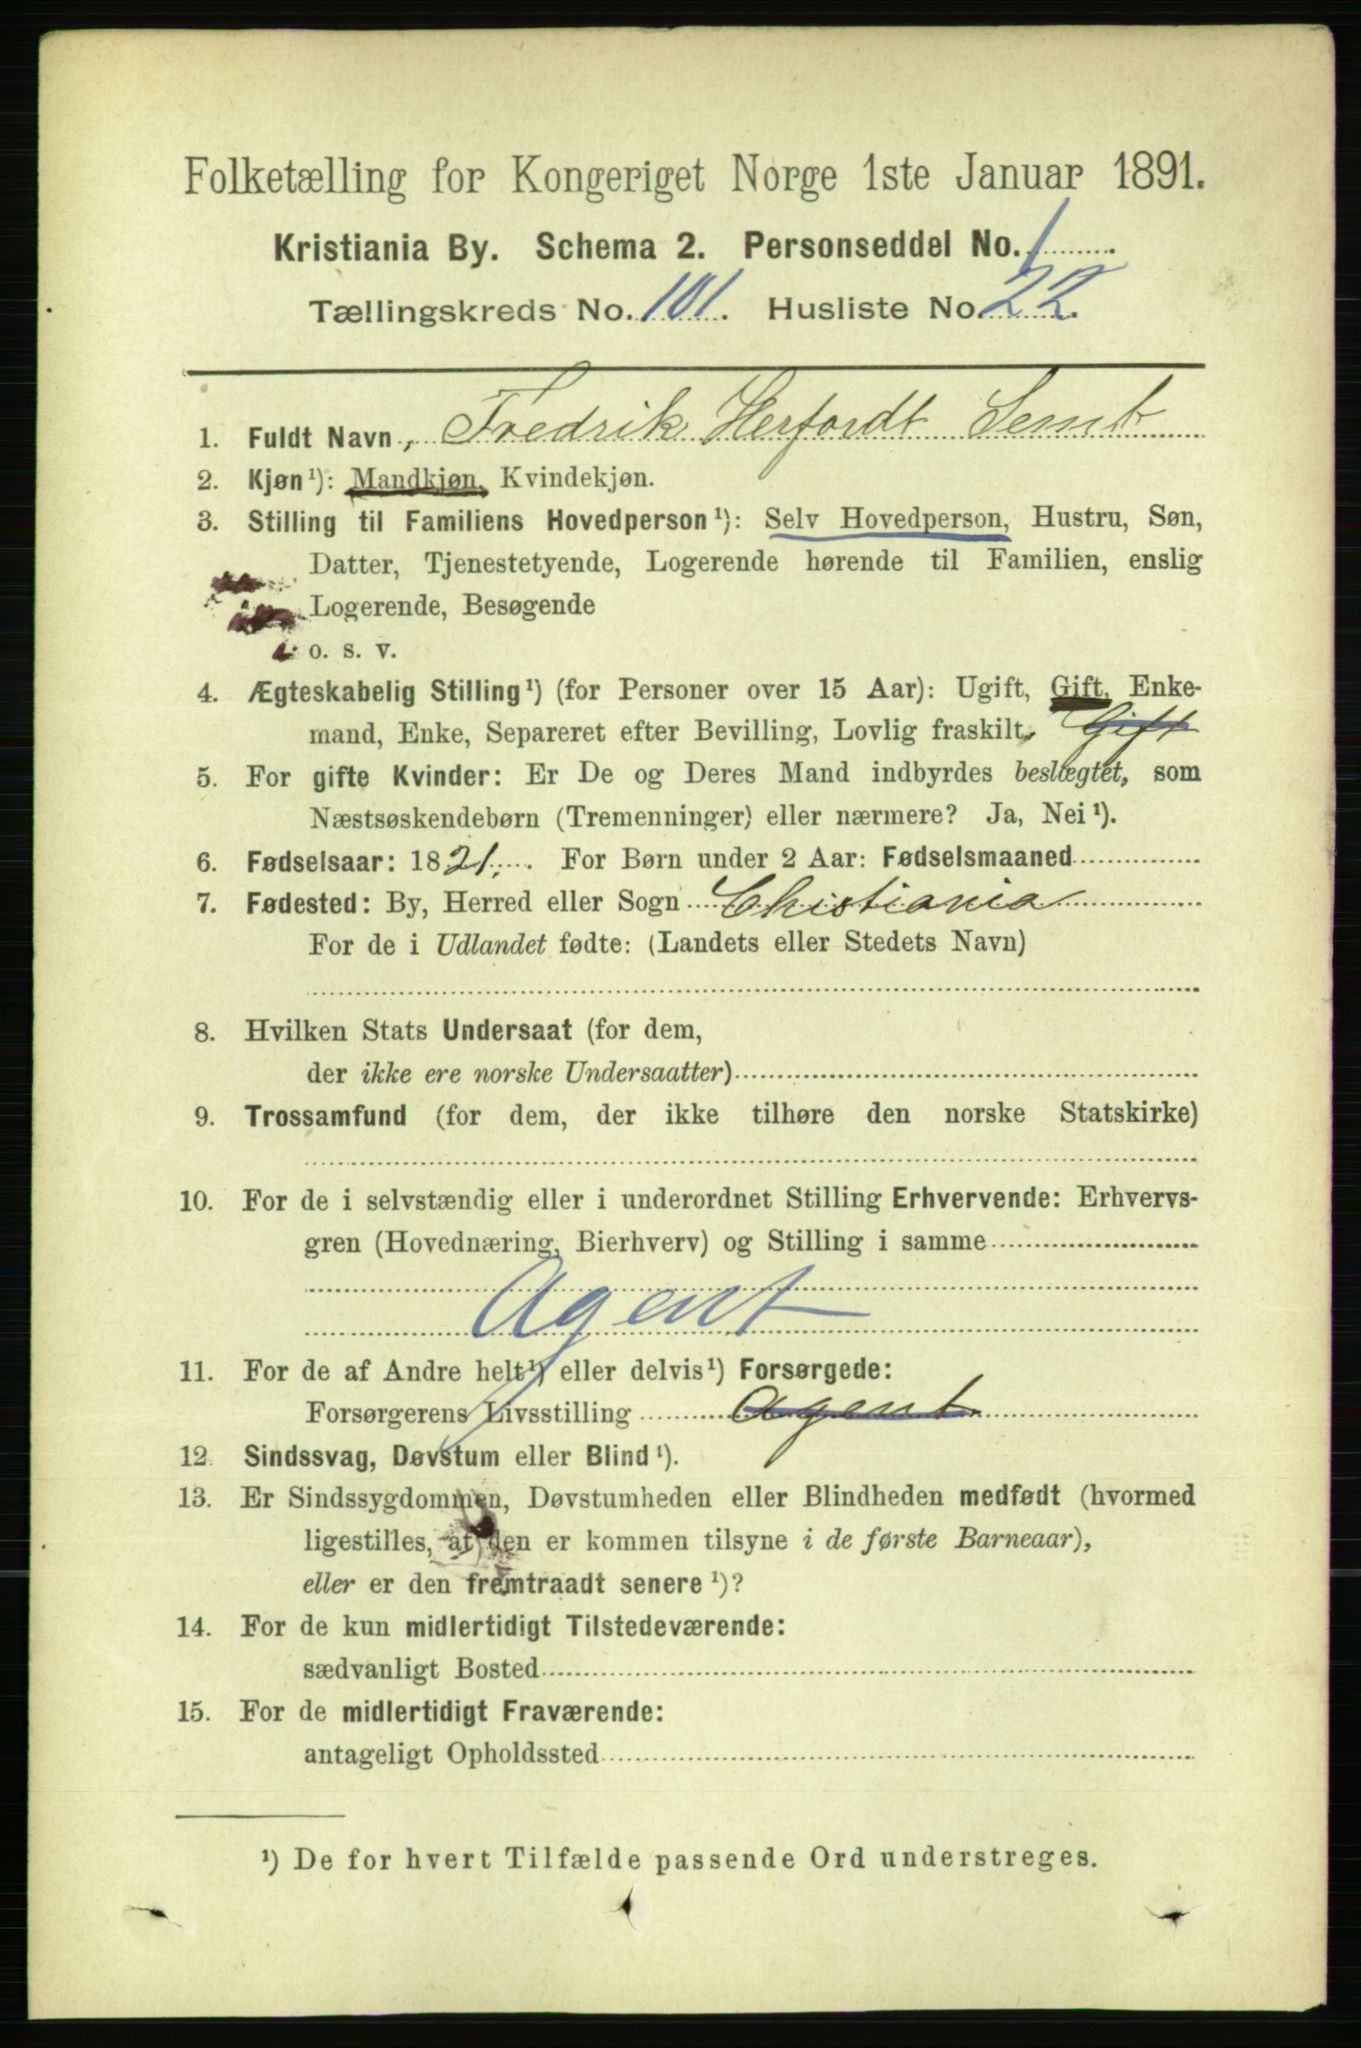 Folketælling for Kongeriget Norge 1ste Januar 1891.
Kristiania By. Schema 2. Personseddel No. 1
Tællingskreds No. 101. Husliste No. 22.
1. Fuldt Navn, Fredrik Herfordt Semb
2. Kjøn¹): Mandkjøn, Kvindekjøn.
3. Stilling til Familiens Hovedperson¹): Selv Hovedperson, Hustru, Søn,
Datter, Tjenestetyende, Logerende hørende til Familien, enslig
Logerende, Besøgende
o. s. v.
4. Ægteskabelig Stilling¹) (for Personer over 15 Aar): Ugift, Gift, Enke-
mand, Enke, Separeret efter Bevilling, Lovlig fraskilt. Gift
5. For gifte Kvinder: Er De og Deres Mand indbyrdes beslægtet, som
Næstsøskendebørn (Tremenninger) eller nærmere? Ja, Nei¹).
6. Fødselsaar: 1821. For Børn under 2 Aar: Fødselsmaaned
7. Fødested: By, Herred eller Sogn Christiania
For de i Udlandet fødte: (Landets eller Stedets Navn)
8. Hvilken Stats Undersaat (for dem,
der ikke ere norske Undersaatter)
9. Trossamfund (for dem, der ikke tilhøre den norske Statskirke)
10. For de i selvstændig eller i underordnet Stilling Erhvervende: Erhvervs-
gren (Hovednæring, Bierhverv) og Stilling i samme
Agent
11. For de af Andre helt¹) eller delvis¹) Forsørgede:
Forsørgerens Livsstilling Agent
12. Sindssvag, Døvstum eller Blind¹).
13. Er Sindssygdommen, Døvstumheden eller Blindheden medfødt (hvormed
ligestilles, at den er kommen tilsyne i de første Barneaar),
eller er den fremtraadt senere¹)?
14. For de kun midlertidigt Tilstedeværende:
sædvanligt Bosted
15. For de midlertidigt Fraværende:
antageligt Opholdssted
¹) De for hvert Tilfælde passende Ord understreges.